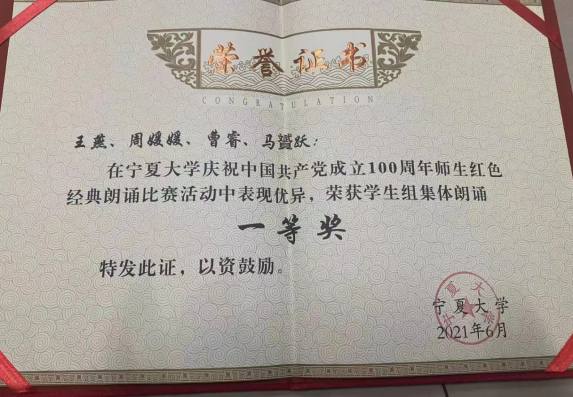 荣誉证书
CONGRATULATION
王燕、周媛媛、曹睿、马赟跃：
在宁夏大学庆祝中国共产党成立100周年师生红色
经典朗诵比赛活动中表现优异，荣获学生组集体朗诵
一等奖
特发此证，以资鼓励。
宁夏大学
2021年6月